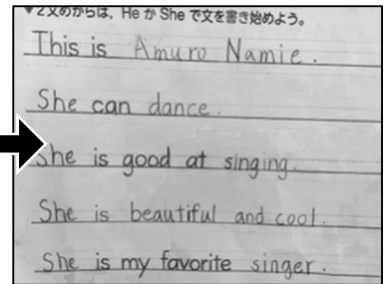 ▼2文めからは，He か She で文を書き始めよう。
This is Amuro Namie.
She can dance.
She is good at singing.
She is beautiful and cool.
She is my favorite singer.